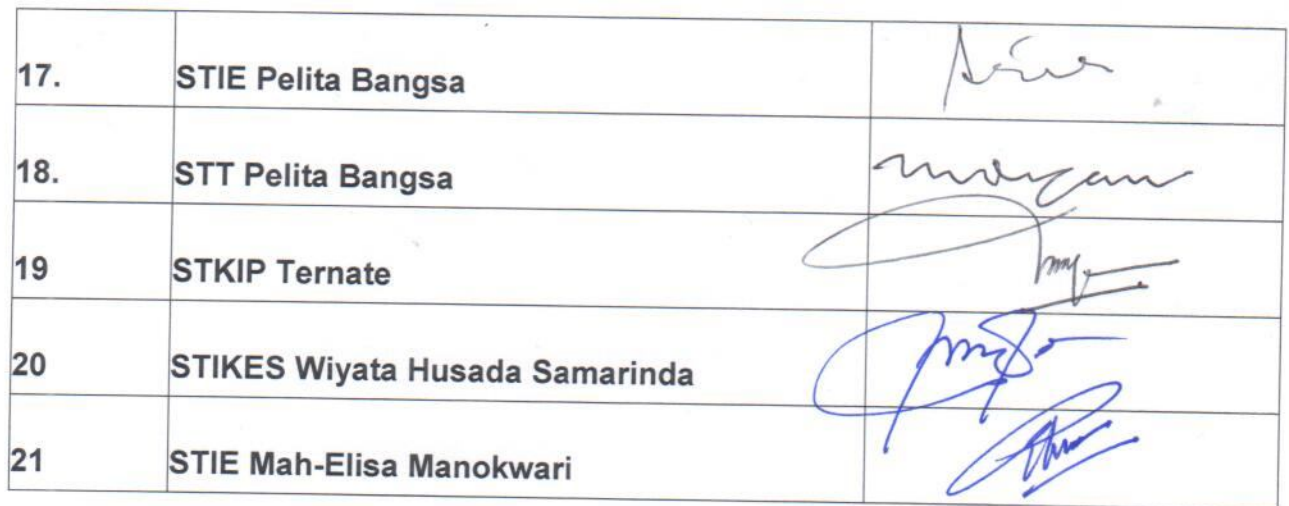 17. STIE Pelita Bangsa
18. STT Pelita Bangsa
19 STKIP Ternate
20 STIKES Wiyata Husada Samarinda
21 STIE Mah-Elisa Manokwari